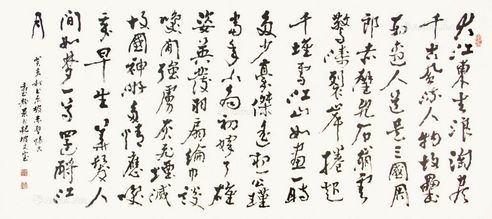 大江東去浪淘盡
千古風流人物故壘
西邊人道是三國周
郎赤壁亂石崩雲
驚濤裂岸捲起
千堆雪江山如畫一時
多少豪傑遙想公瑾
當年小喬初嫁了雄
姿英發羽扇綸巾談
笑間強虜灰飛煙滅
故國神遊多情應笑
我早生華髮人
間如夢一尊還酹江
月